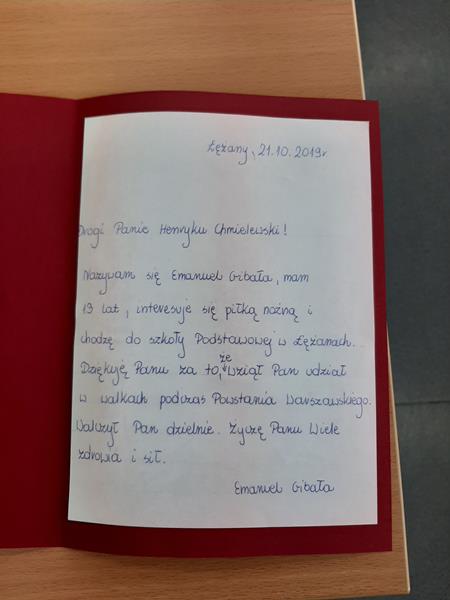 Łężany, 21.10.2019r
Drogi Panie Henryku Chmielewski!
Nazywam się Emanuel Gibała, mam
13 lat, interesuje się piłką nożną i
chodzę do szkoły Podstawowej w Łężanach.
Dziękuję Panu za to, że wziął Pan udział
w walkach podczas Powstania Warszawskiego.
Walczył Pan dzielnie. Życzę Panu Wiele
zdrowia i sił.
Emanuel Gibała